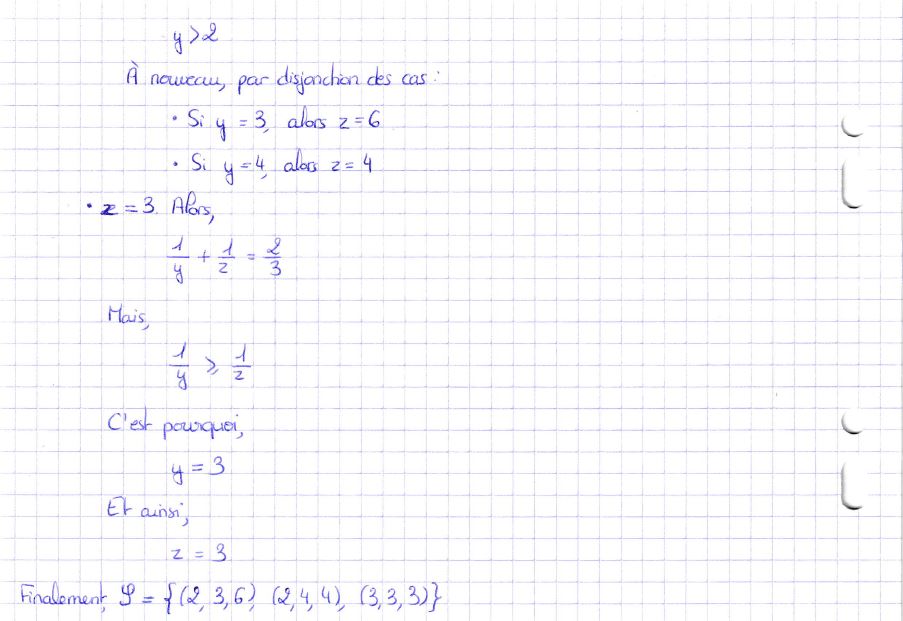 y > 2
À nouveau, par disjonction des cas :
• Si y = 3, alors z = 6
• Si y = 4, alors z = 4
• x = 3. Alors,
1/y + 1/z = 2/3
Mais,
1/y ⩾ 1/z
C'est pourquoi,
y = 3
Et ainsi,
z = 3
Finalement, 𝒮 = {(2, 3, 6), (2, 4, 4), (3, 3, 3)}